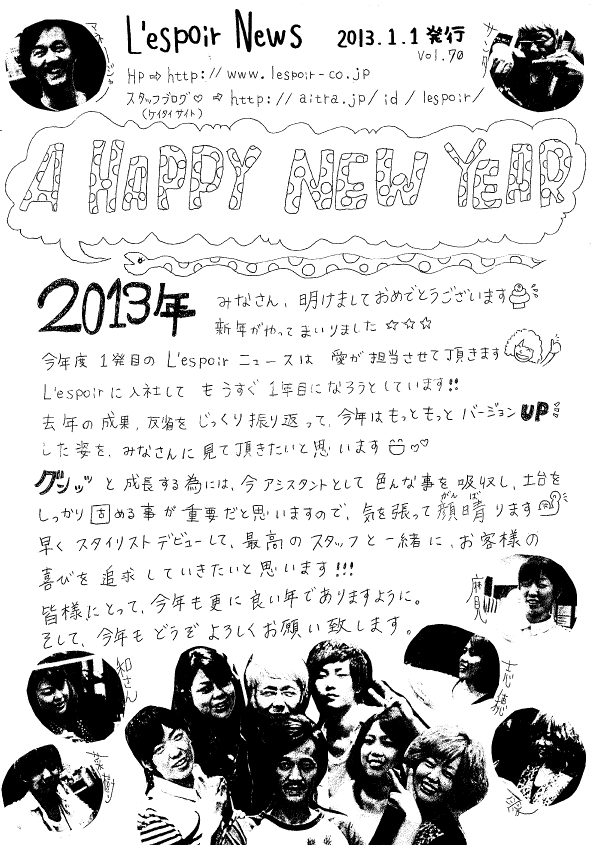 L'espoir News 2013.1.1 発行
vol.70
HP ⇨ http://www.lespoir-co.jp
スタッフブログ♡ ⇨ http://aitra.jp/id/lespoir/
(ケイタイサイト)
A HAPPY NEW YEAR
2013年 みなさん、明けましておめでとうございます
新年がやってまいりました ☆☆☆
今年度 1発目の L'espoir ニュースは 愛が担当させて頂きます
L'espoirに入社して もうすぐ 1年目になろうとしています!!
去年の成果、反省を じっくり振り返って、今年はもっともっと バージョン UP
した姿を、みなさんに見て頂きたいと思います
グンッッ と成長する為には、今アシスタントとして 色んな事を吸収し、土台を
しっかり 固める事が重要だと思いますので、気を張って 顔晴ります
がんば
早く スタイリストデビューして、最高のスタッフと一緒に、お客様の
喜びを追求していきたいと思います!!!
皆様にとって、今年も更に良い年でありますように。
そして、今年も どうぞ よろしくお願い致します。
和さん
愛